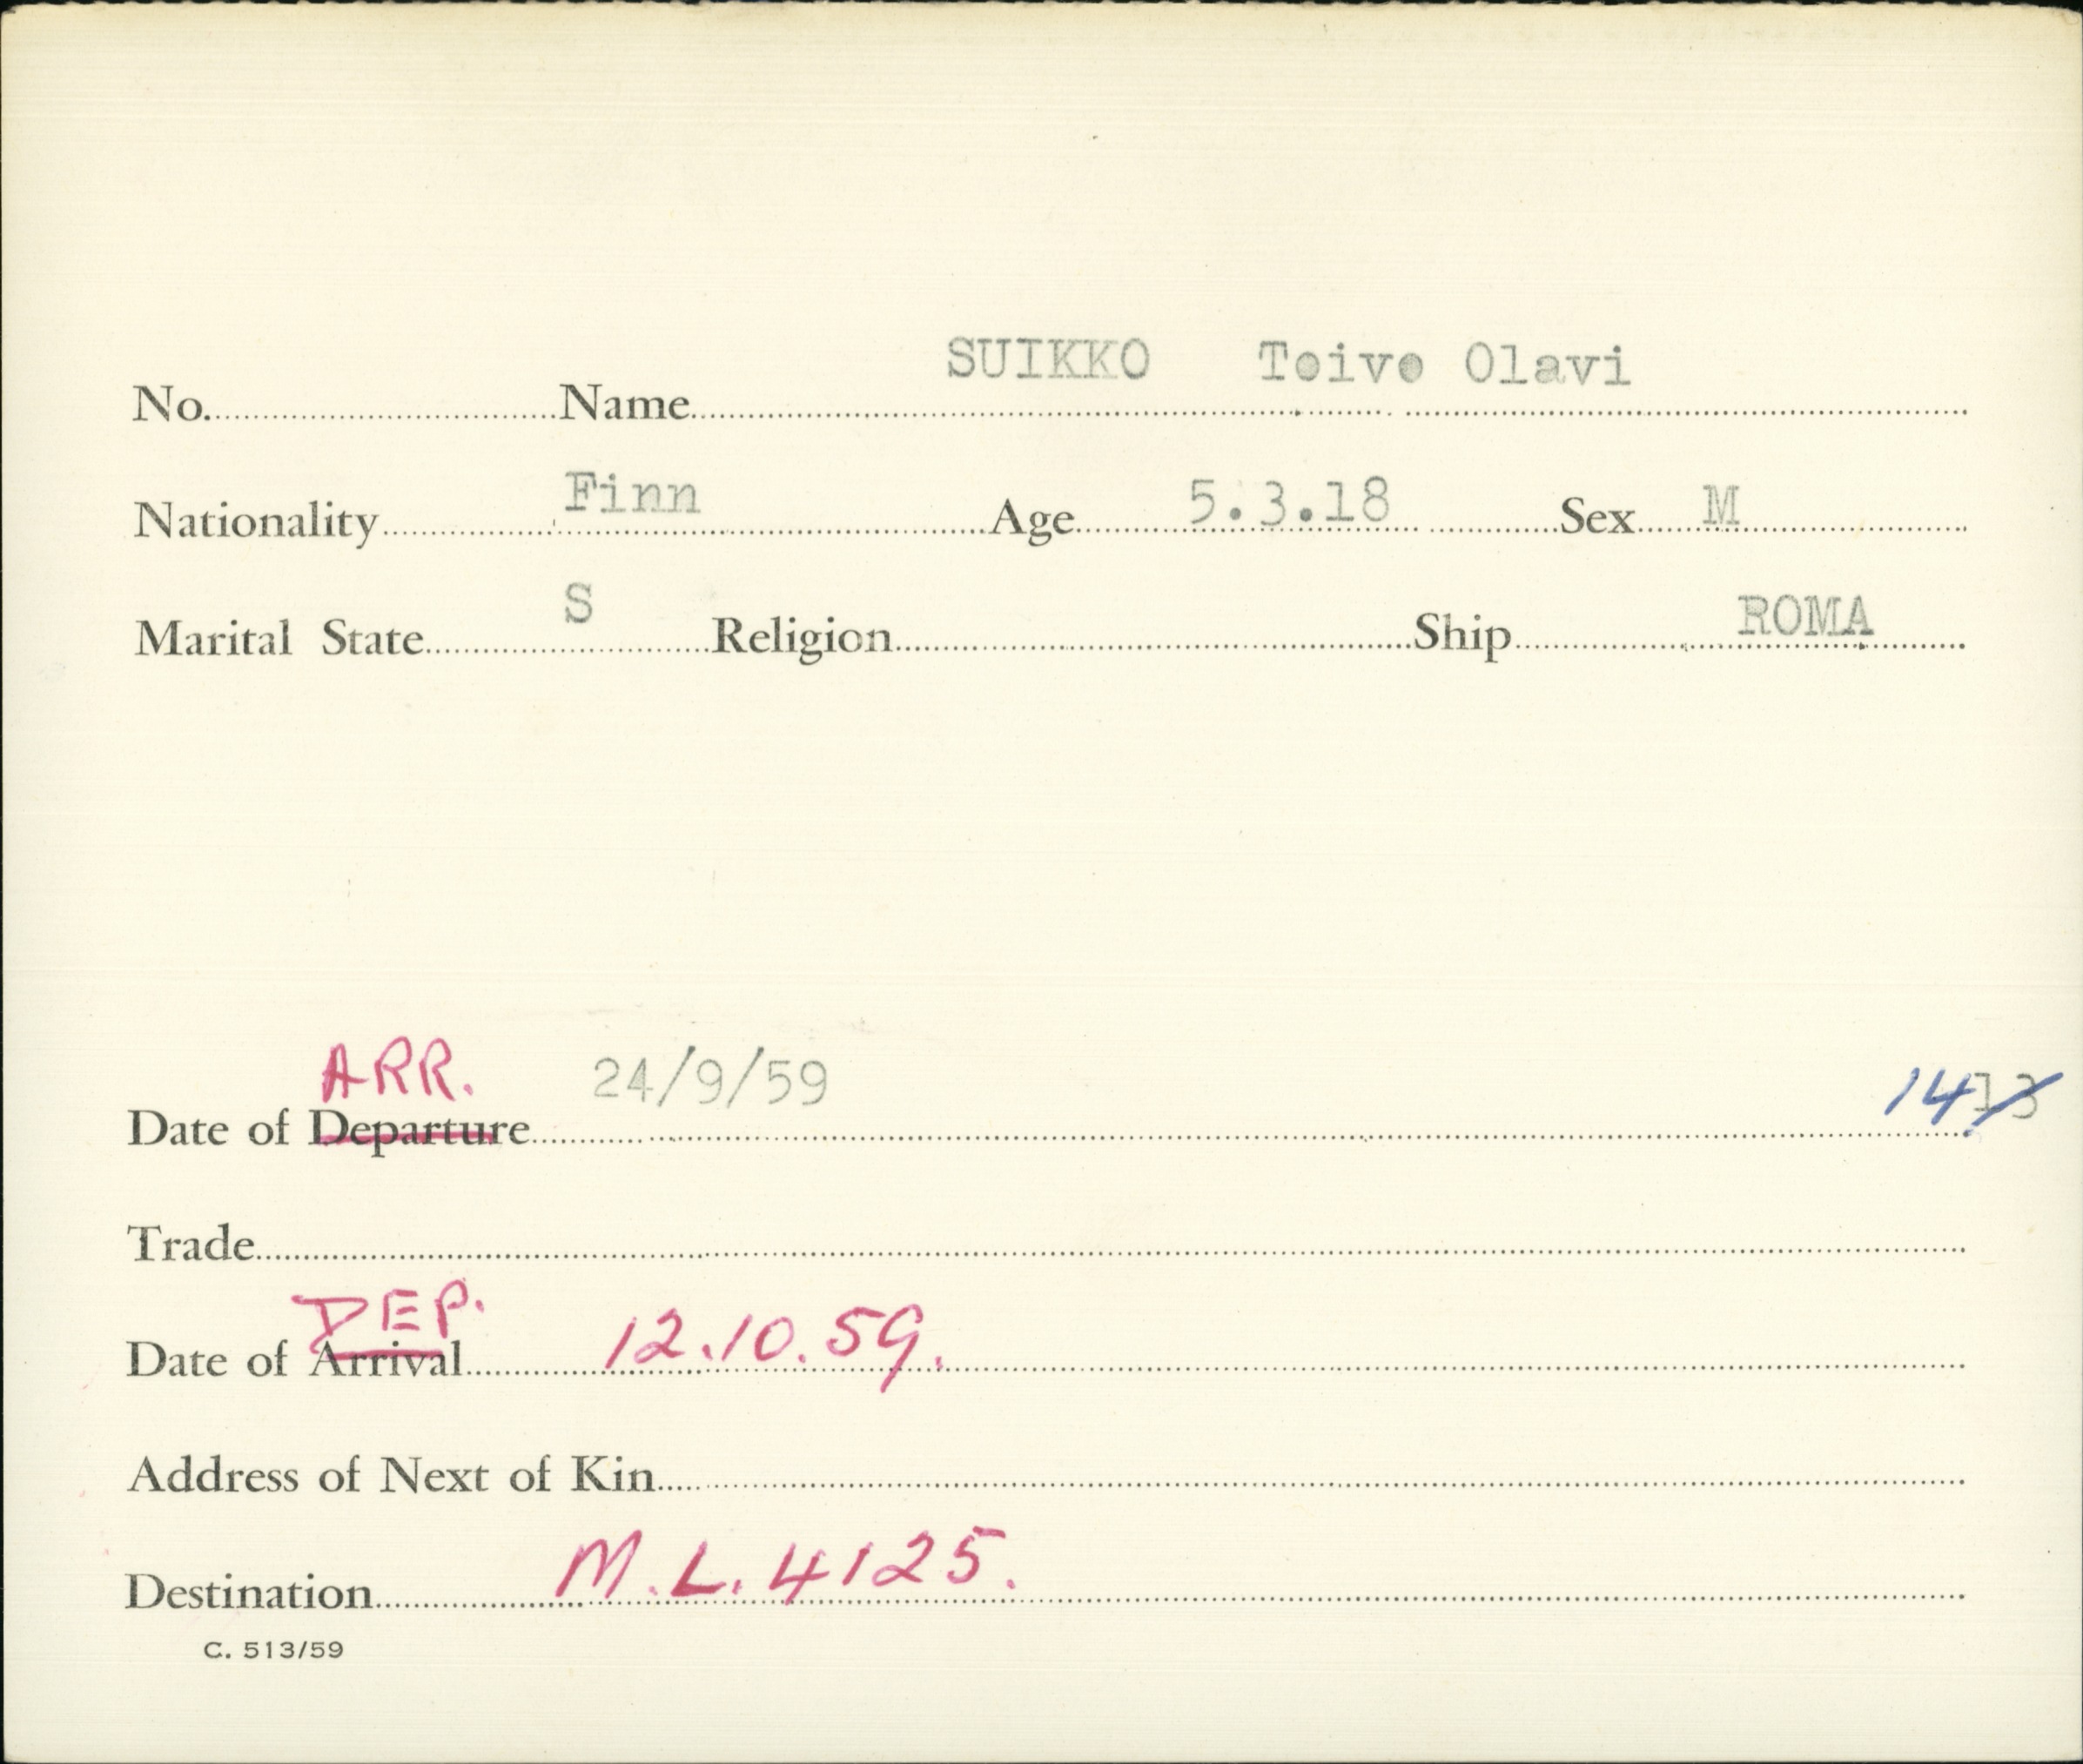 SUIKKO Toivo Olavi
No. Name
Nationality Finn Age 5.3.18 Sex M
Marital State S Religion Ship ROMA
ARR.
Date of Departure 24/9/59 14 13
Trade
DEP.
Date of Arrival 12.10.59.
Address of Next of Kin
Destination M.L. 4125.
C. 513/59